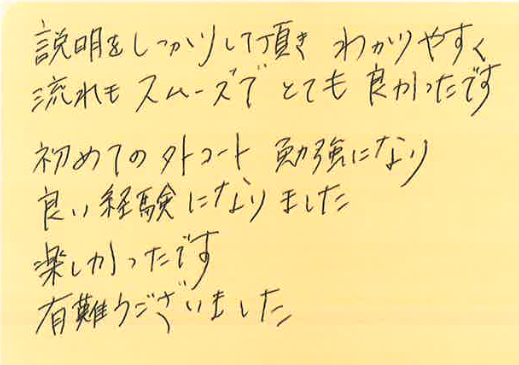 説明をしっかりして頂き わかりやすく
流れも スムーズで とても 良かったです
初めての外コート 勉強になり
良い経験になりました
楽しかったです
有難うございました